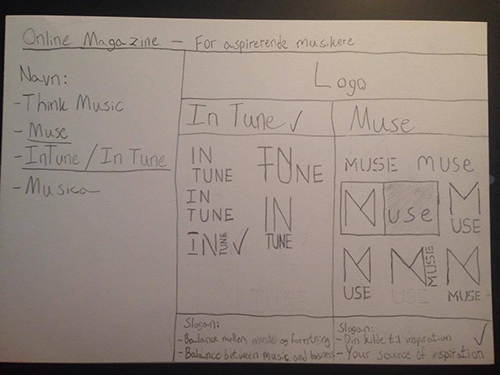 Online Magazine - For aspirerende musikere
Navn:
- Think Music
- Muse
- InTune / In Tune
- Musica
Logo
In Tune ✓
IN
TUNE
IN
TUNE
IN TUNE ✓
IN
TUNE
IN
TUNE
Slogan:
- Balance mellem musik og forretning
- Balance between music and
Muse
MUSE
muse
M use
M
USE
M
USE
M
MUSE
USE
M
MUSE
Slogan:
- Din kilde til inspiration ✓
- Your source of inspiration